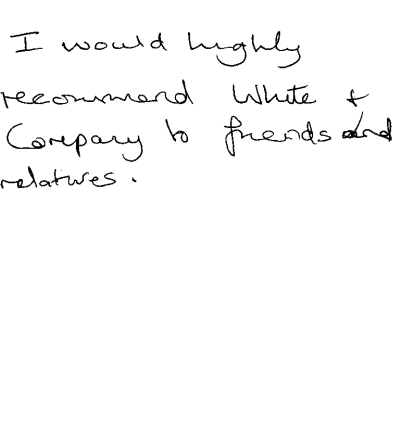 I would highly
recommend White &
Company to friends and
relatives.